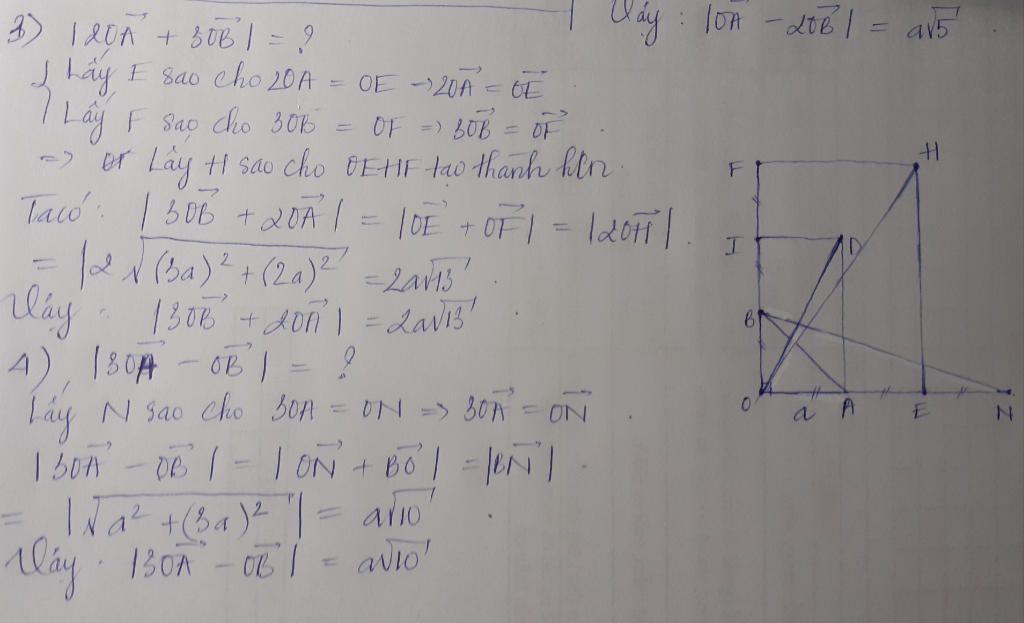 3) |2OA + 3OB| = ?
Lấy E sao cho 2OA = OE → 2OA = OE
Lấy F sao cho 3OB = OF => 3OB = OF .
=> Lấy H sao cho OEHF tạo thành hcn.
Ta có: |3OB + 2OA| = |OE + OF| = |2OH|.
= |2√((3a)² + (2a)²) = 2a√13
Vậy : |3OB + 2OA| = 2a√13
4) |3OA - OB| = ?
Lấy N sao cho 3OA = ON => 3OA = ON .
|3OA - OB| = |ON + BO| = |BN| .
= |√(a² + (3a)²)| = a√10 .
Vậy . |3OA - OB| = a√10
Vậy : |OA - 2OB| = a√5 .
F H
I D
B
O a A E N